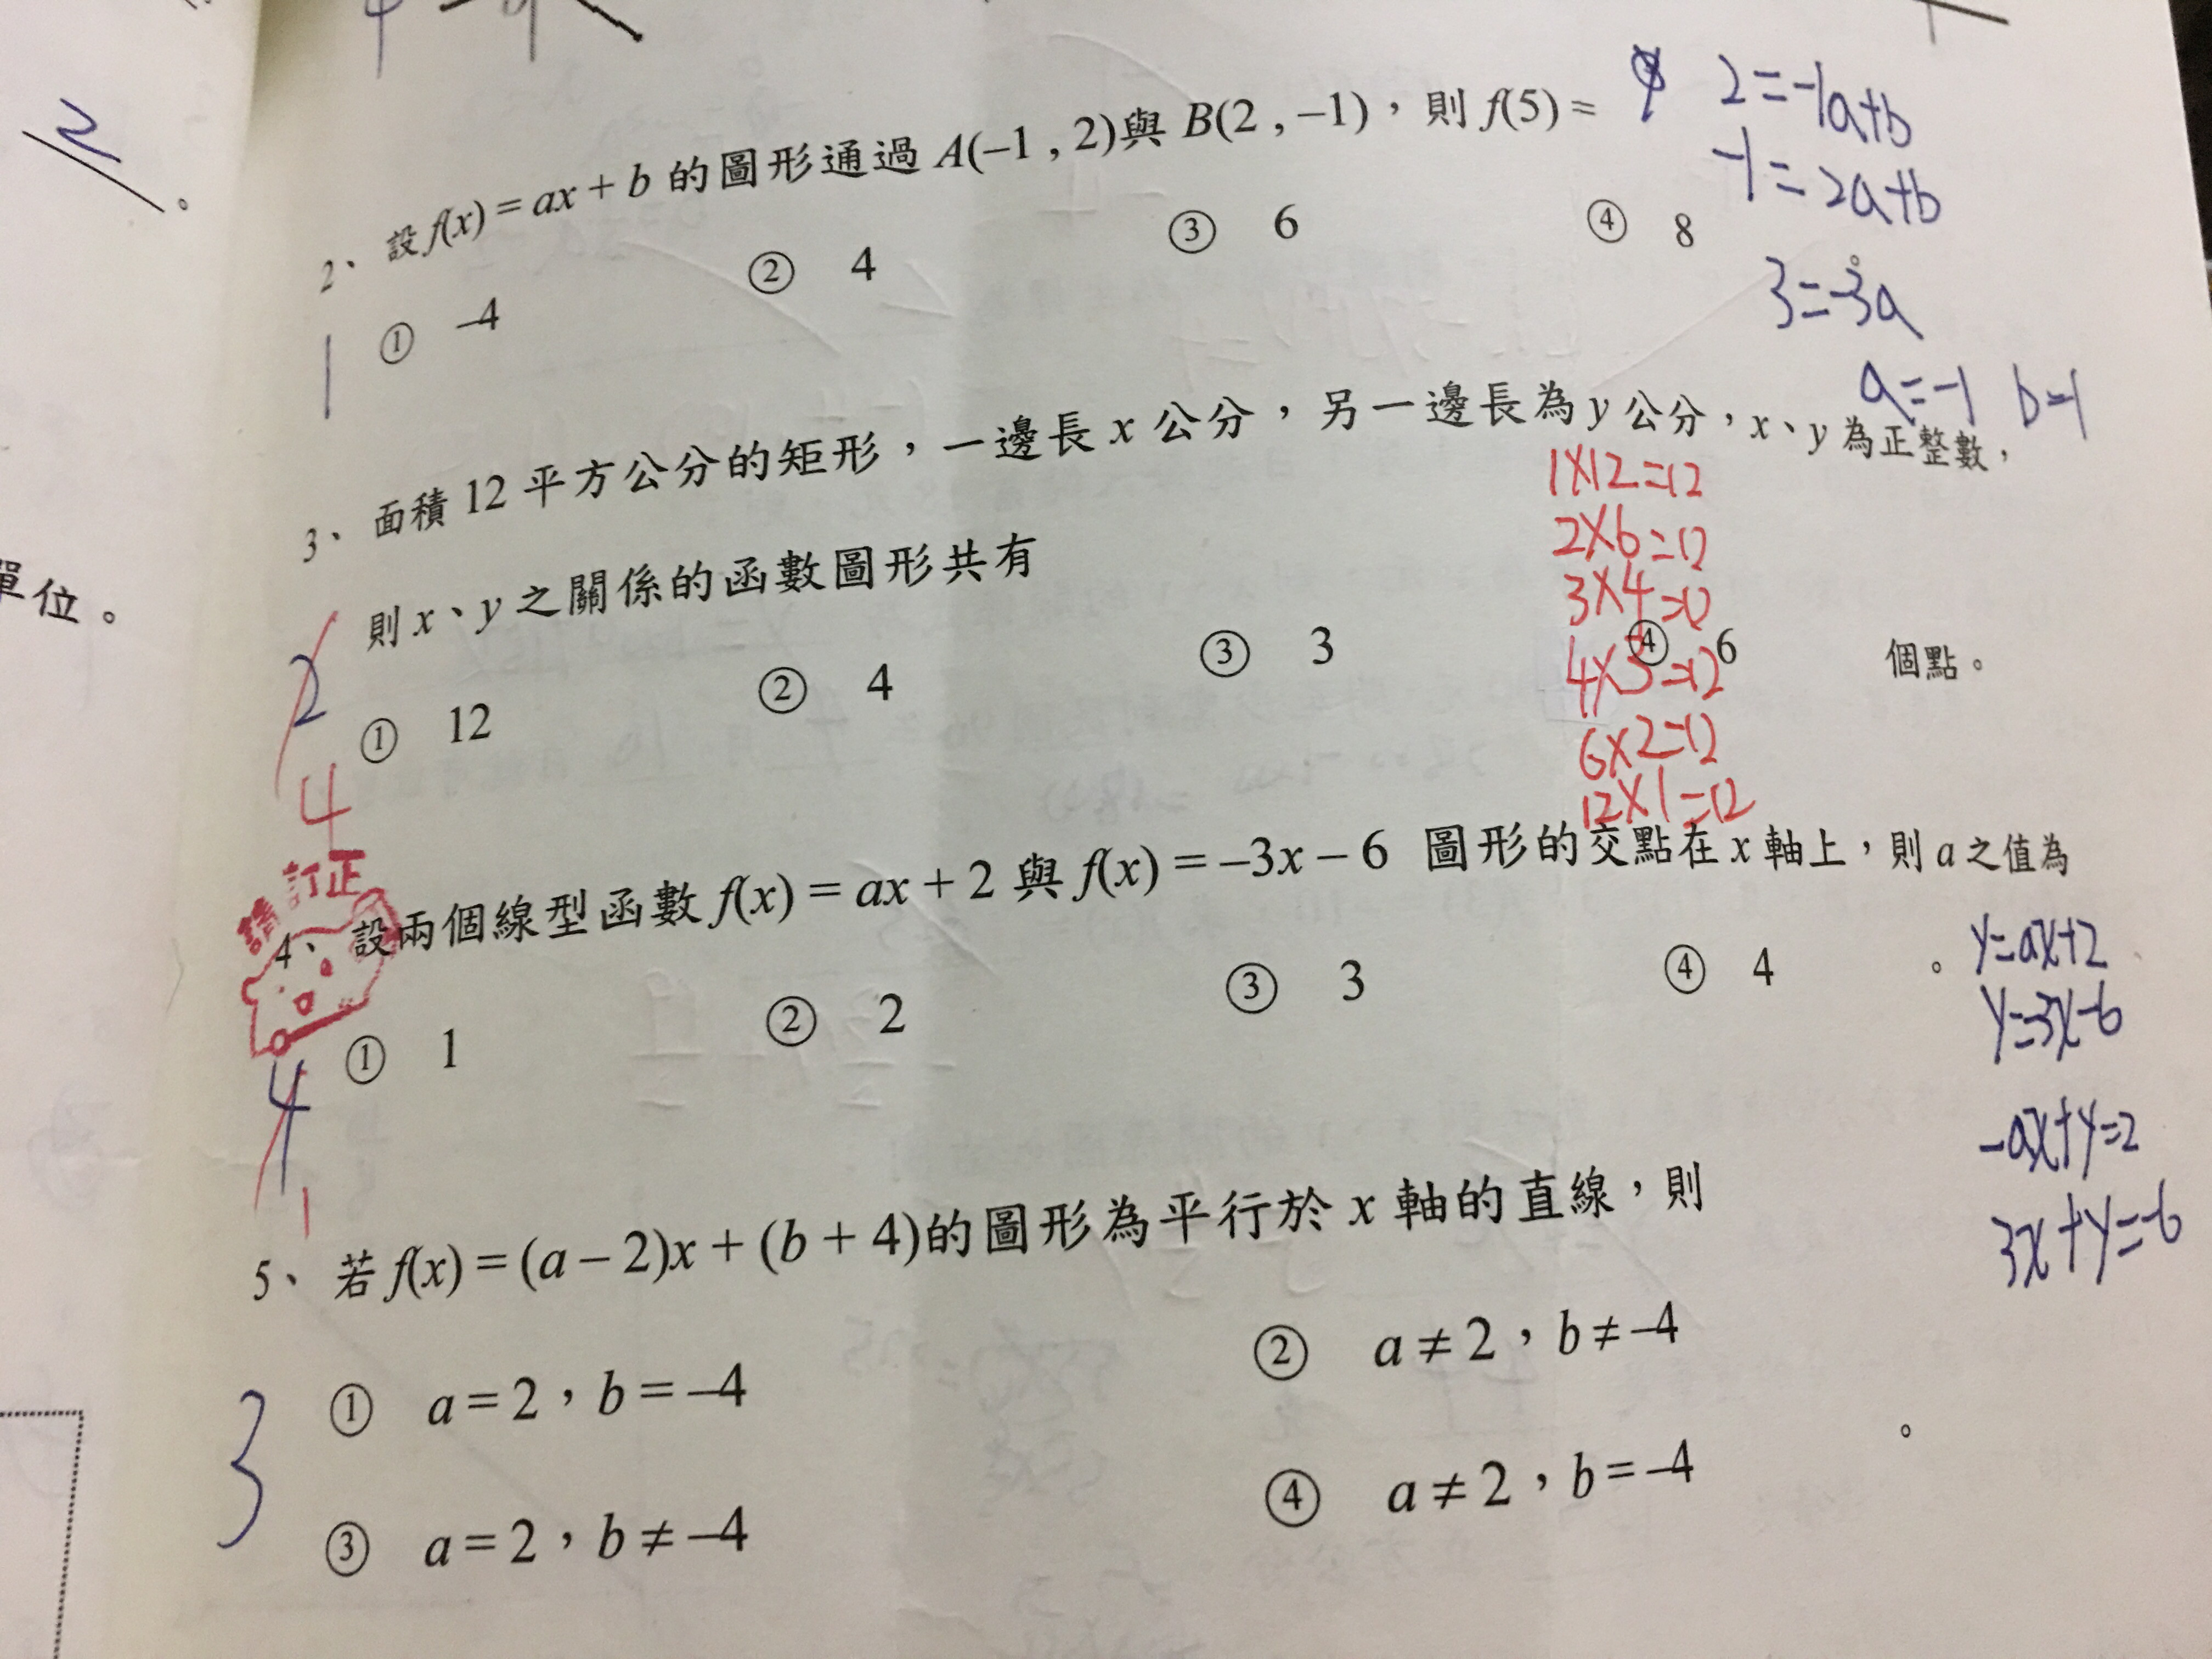 2
。
單位。
2、設 f(x) = ax + b 的圖形通過 A(–1 , 2)與 B(2 , –1),則 f(5) =
① –4 ② 4 ③ 6 ④ 8 。
1
2=-1a+b
-1=2a+b
3=-3a
a=-1 b=1
3、面積 12 平方公分的矩形,一邊長 x 公分,另一邊長為 y 公分,x、y 為正整數,
則 x、y 之關係的函數圖形共有
① 12 ② 4 ③ 3 ④ 6 個點。
2
4
1×12=12
2×6=12
3×4=12
4×3=12
6×2=12
12×1=12
請訂正
4、設兩個線型函數 f(x) = ax + 2 與 f(x) = –3x – 6 圖形的交點在 x 軸上,則 a 之值為
① 1 ② 2 ③ 3 ④ 4 。
4
1
y=ax+2
y=-3x-6
-ax+y=2
3x+y=-6
5、若 f(x) = (a – 2)x + (b + 4)的圖形為平行於 x 軸的直線,則
① a = 2,b = –4 ② a ≠ 2,b ≠ –4
③ a = 2,b ≠ –4 ④ a ≠ 2,b = –4 。
3